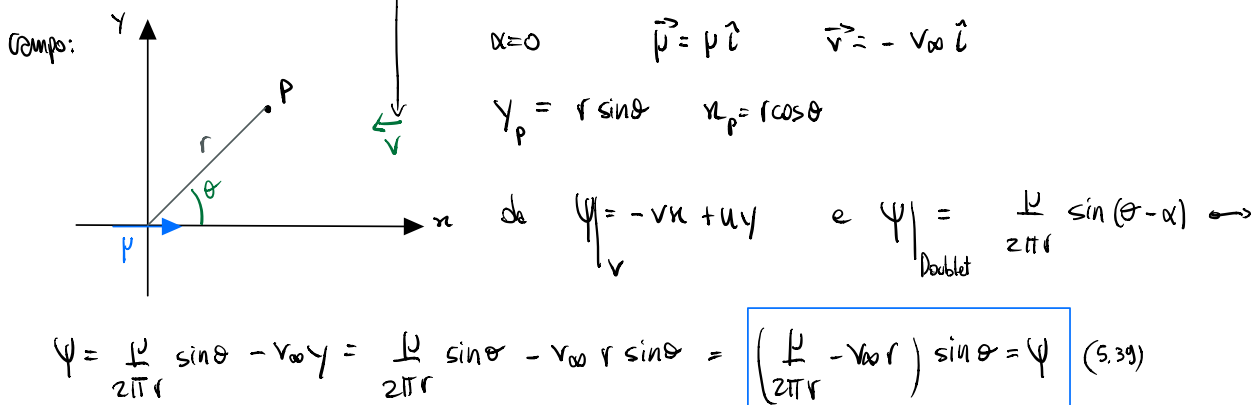 campo: Y P r θ x μ V
α=0 μ⃗ = μ î v⃗ = - V∞ î
y_p = r sinθ x_p = r cosθ
de Ψ|_V = -vx + uy e Ψ|_Doublet = μ/2πr sin(θ-α) →
Ψ = μ/2πr sinθ - V∞ y = μ/2πr sinθ - V∞ r sinθ = (μ/2πr - V∞ r) sinθ = Ψ (5.39)